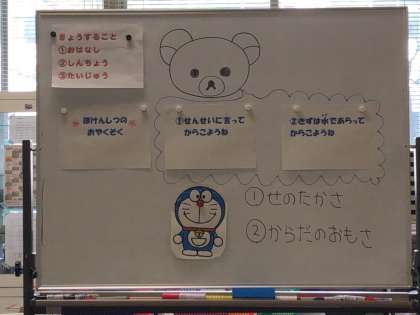 きょうすること
①おはなし
②しんちょう
③たいじゅう
ほけんしつの
おやくそく
①せんせいに言って
からこようね
②きずは水であらって
からこようね
①せのたかさ
②からだのおもさ